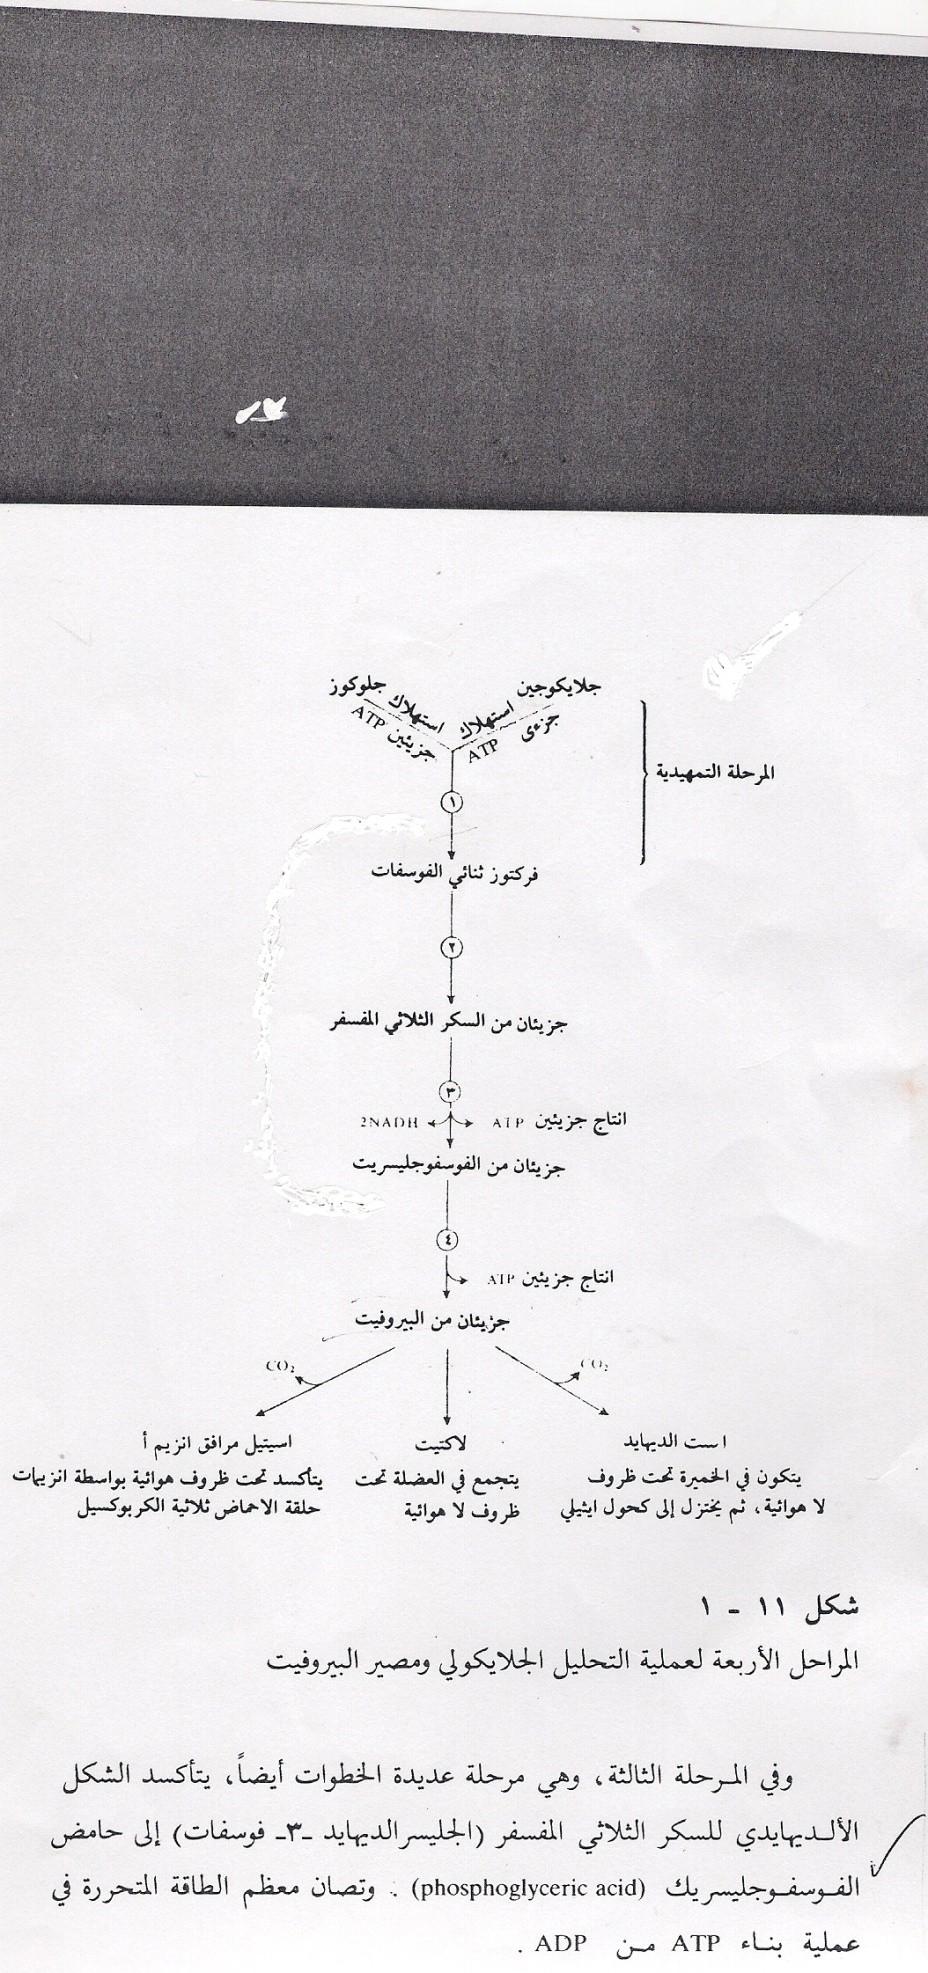 جلايكوجين
جلوكوز
استهلاك جزءى ATP
استهلاك جزيئين ATP
المرحلة التمهيدية
١
فركتوز ثنائي الفوسفات
٢
جزيئان من السكر الثلاثي المفسفر
٣
انتاج جزيئين ATP
2NADH
جزيئان من الفوسفوجليسريت
٤
انتاج جزيئين ATP
جزيئان من البيروفيت
CO₂
CO₂
است الديهايد
يتكون في الخميرة تحت ظروف
لا هوائية، ثم يختزل إلى كحول ايثيلي
لاكتيت
يتجمع في العضلة تحت
ظروف لا هوائية
اسيتيل مرافق انزيم أ
يتأكسد تحت ظروف هوائية بواسطة انزيمات
حلقة الاحماض ثلاثية الكربوكسيل
شكل ١١ - ١
المراحل الأربعة لعملية التحليل الجلايكولي ومصير البيروفيت
وفي المرحلة الثالثة، وهي مرحلة عديدة الخطوات أيضاً، يتأكسد الشكل
الألديهايدي للسكر الثلاثي المفسفر (الجليسرالديهايد -٣- فوسفات) إلى حامض
الفوسفوجليسريك (phosphoglyceric acid). وتصان معظم الطاقة المتحررة في
عملية بناء ATP من ADP .